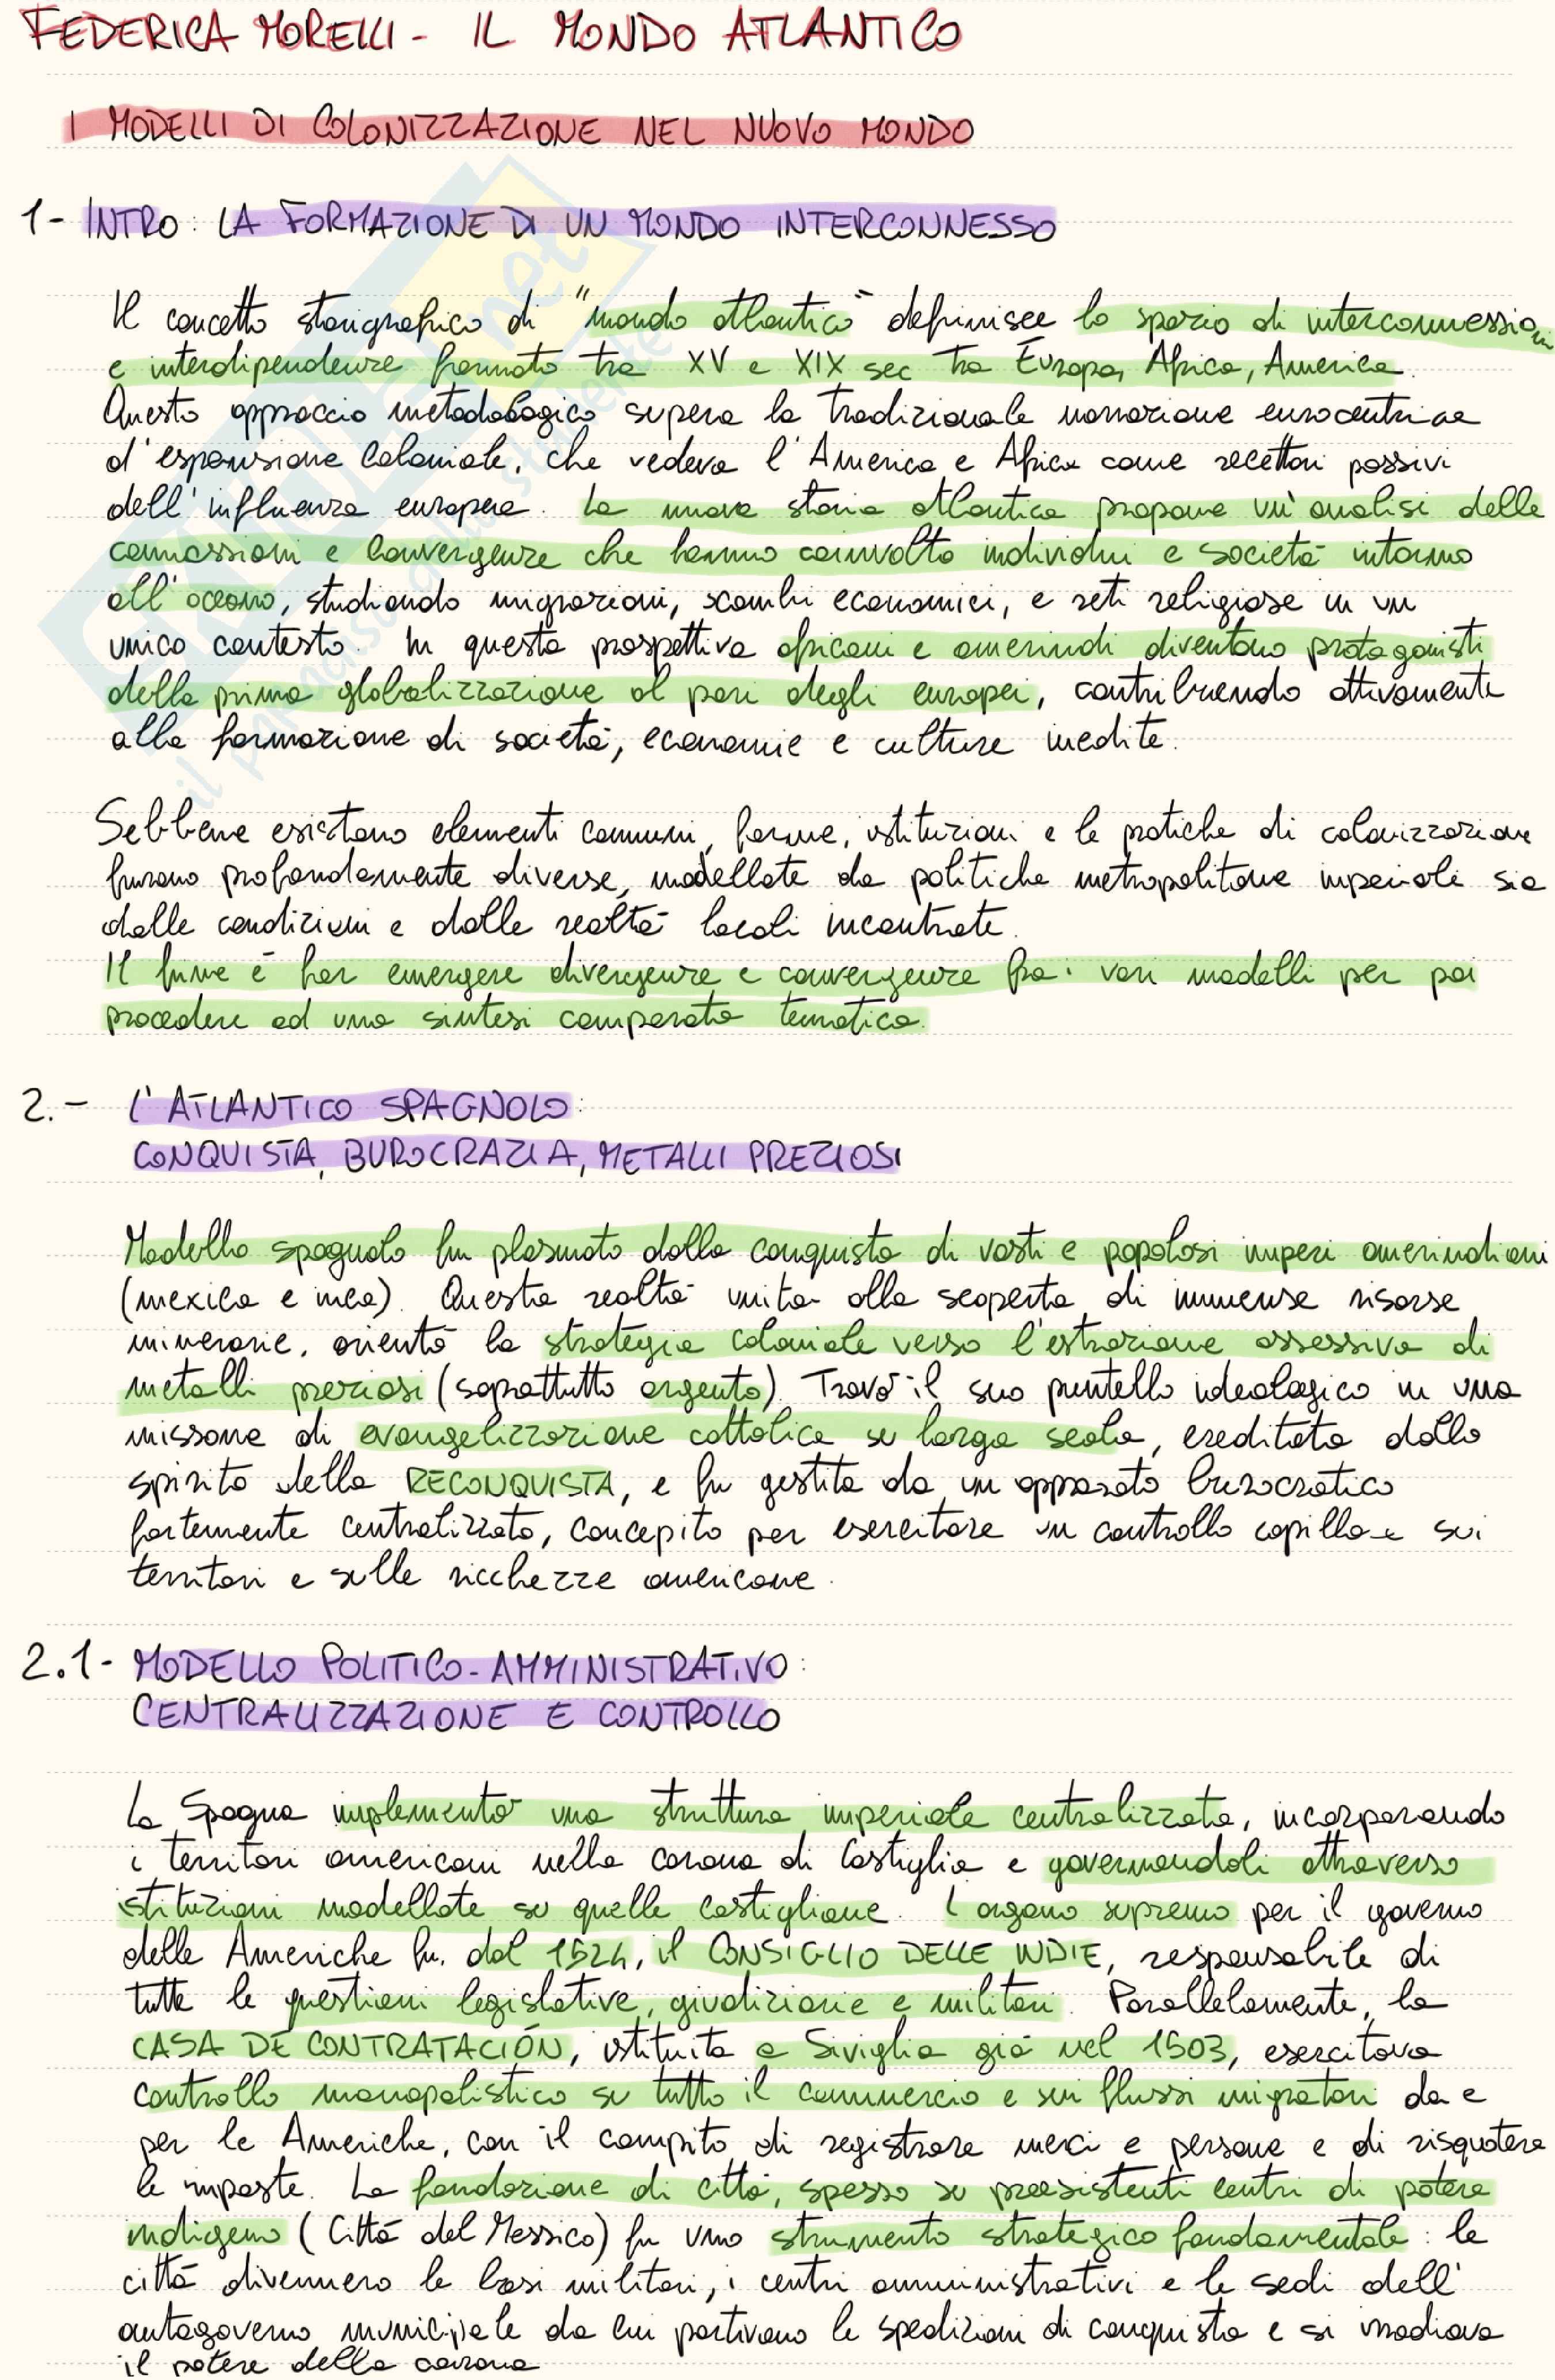 FEDERICA MORELLI - IL MONDO ATLANTICO
I MODELLI DI COLONIZZAZIONE NEL NUOVO MONDO
1- INTRO: LA FORMAZIONE DI UN MONDO INTERCONNESSO
Il concetto storiografico di "mondo atlantico" definisce lo spazio di interconnessioni
e interdipendenze formato tra XV e XIX sec tra Europa, Africa, America.
Questo approccio metodologico supera la tradizionale narrazione eurocentrica
d'espansione coloniale, che vedeva l'America e Africa come recettori passivi
dell'influenza europea. La nuova storia atlantica propone un'analisi delle
connessioni e convergenze che hanno coinvolto individui e società intorno
all'oceano, studiando migrazioni, scambi economici, e reti religiose in un
unico contesto. In questa prospettiva africani e amerindi diventano protagonisti
della prima globalizzazione al pari degli europei, contribuendo attivamente
alla formazione di società, economie e culture inedite.
Sebbene esistano elementi comuni, forme, istituzioni e le pratiche di colonizzazione
furono profondamente diverse, modellate da politiche metropolitane imperiali sia
dalle condizioni e dalle realtà locali incontrate.
Il fine è far emergere divergenze e convergenze fra i vari modelli per poi
procedere ad una sintesi comparata tematica.
2.- L'ATLANTICO SPAGNOLO:
CONQUISTA, BUROCRAZIA, METALLI PREZIOSI
Modello spagnolo fu plasmato dalla conquista di vasti e popolosi imperi amerindiani
(mexica e inca). Questa realtà unita alla scoperta di immense risorse
minerarie, orientò la strategia coloniale verso l'estrazione ossessiva di
metalli preziosi (soprattutto argento). Trovò il suo puntello ideologico in una
missone di evangelizzazione cattolica su larga scala, ereditata dallo
spirito della RECONQUISTA, e fu gestita da un apparato burocratico
fortemente centralizzato, concepito per esercitare un controllo capillare sui
territori e sulle ricchezze americane.
2.1- MODELLO POLITICO-AMMINISTRATIVO:
CENTRALIZZAZIONE E CONTROLLO
La Spagna implementò una struttura imperiale centralizzata, incorporando
i territori americani nella corona di Castiglia e governandoli attraverso
istituzioni modellate su quelle castigliane. L'organo supremo per il governo
delle Americhe fu, dal 1524, il CONSIGLIO DELLE INDIE, responsabile di
tutte le questioni legislative, giudiziarie e militari. Parallelamente, la
CASA DE CONTRATACIÓN, istituita a Siviglia già nel 1503, esercitava
controllo monopolistico su tutto il commercio e sui flussi migratori da e
per le Americhe, con il compito di registrare merci e persone e di risquotere
le imposte. La fondazione di città, spesso su preesistenti centri di potere
indigeno (Città del Messico) fu uno strumento strategico fondamentale: le
città divennero le basi militari, i centri amministrativi e le sedi dell'
autogoverno municipale da cui partivano le spedizioni di conquista e si irradiava
il potere della corona